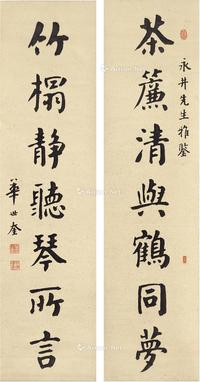 茶簾清與鶴同夢
永井先生雅鑒
竹榻静聽琴所言
華世奎